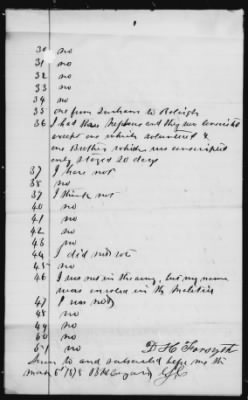 30 no
31 no
32 no
33 no
34 no
35 one from Durham to Raleigh
36 I had three Nephews and they were conscripted
except one which volunteered &
one Brother which was conscripted
only stayed 20 days
37 I have not
38 no
39 I think not
40 no
41 no
42 no
43 no
44 I did not vote
45 no
46 I was not in the army, but my name
was enroled in the Militia
47 I was not
48 no
49 no
50 no
51 no
D H Forsyth
Sworn to and subscribed before me this